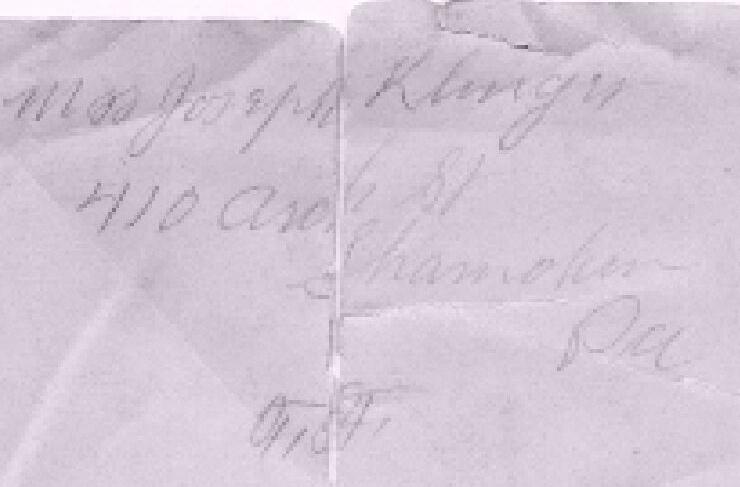 Mrs Joseph Klinger
410 Arch St
Shamokin
Pa